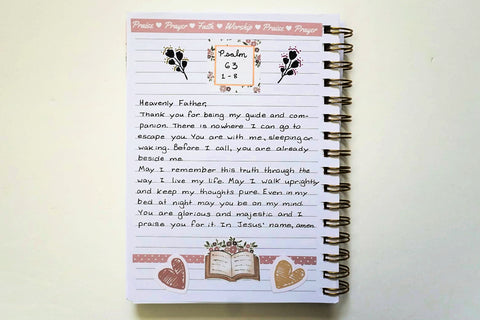 Praise ♥ Prayer ♥ Faith ♥ Worship ♥ Praise ♥ Prayer
Psalm
63
1-8
Heavenly Father,
Thank you for being my guide and com-
panion. There is nowhere I can go to
escape you. You are with me, sleeping or
waking. Before I call, you are already
beside me.
May I remember this truth through the
way I live my life. May I walk uprightly
and keep my thoughts pure. Even in my
bed at night may you be on my mind.
You are glorious and majestic and I
praise you for it. In Jesus' name, amen.